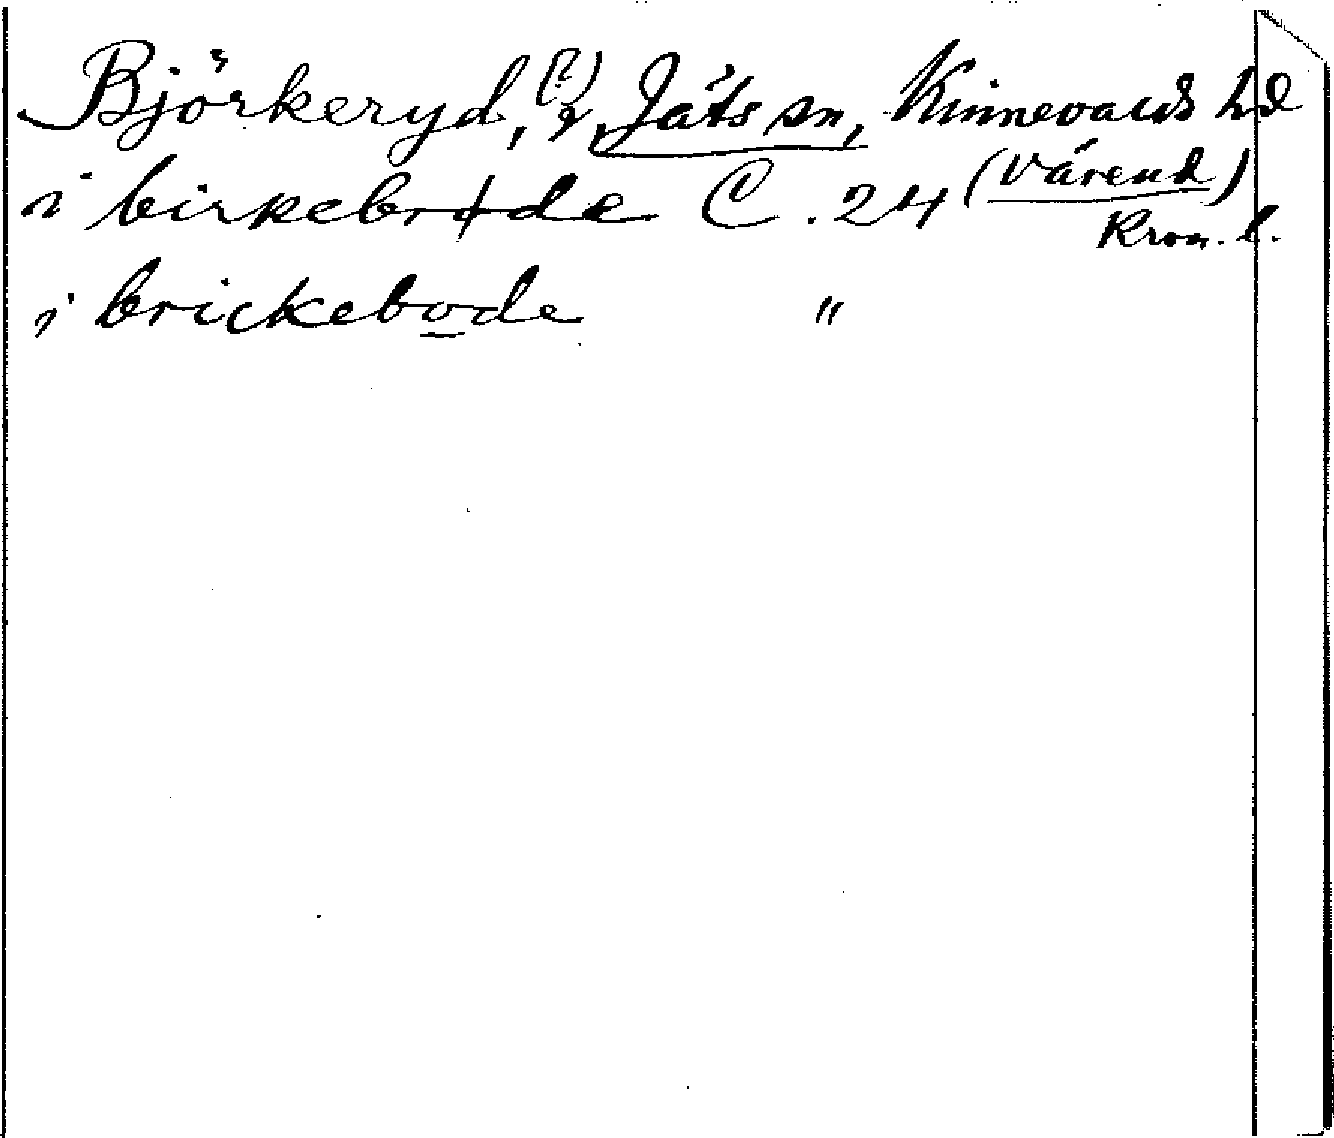 Björkeryd, (?) Jäts sn, Kinnevalds hd
i birkebrøde C. 24 (Värend)
Kron. l.
i brickebode "